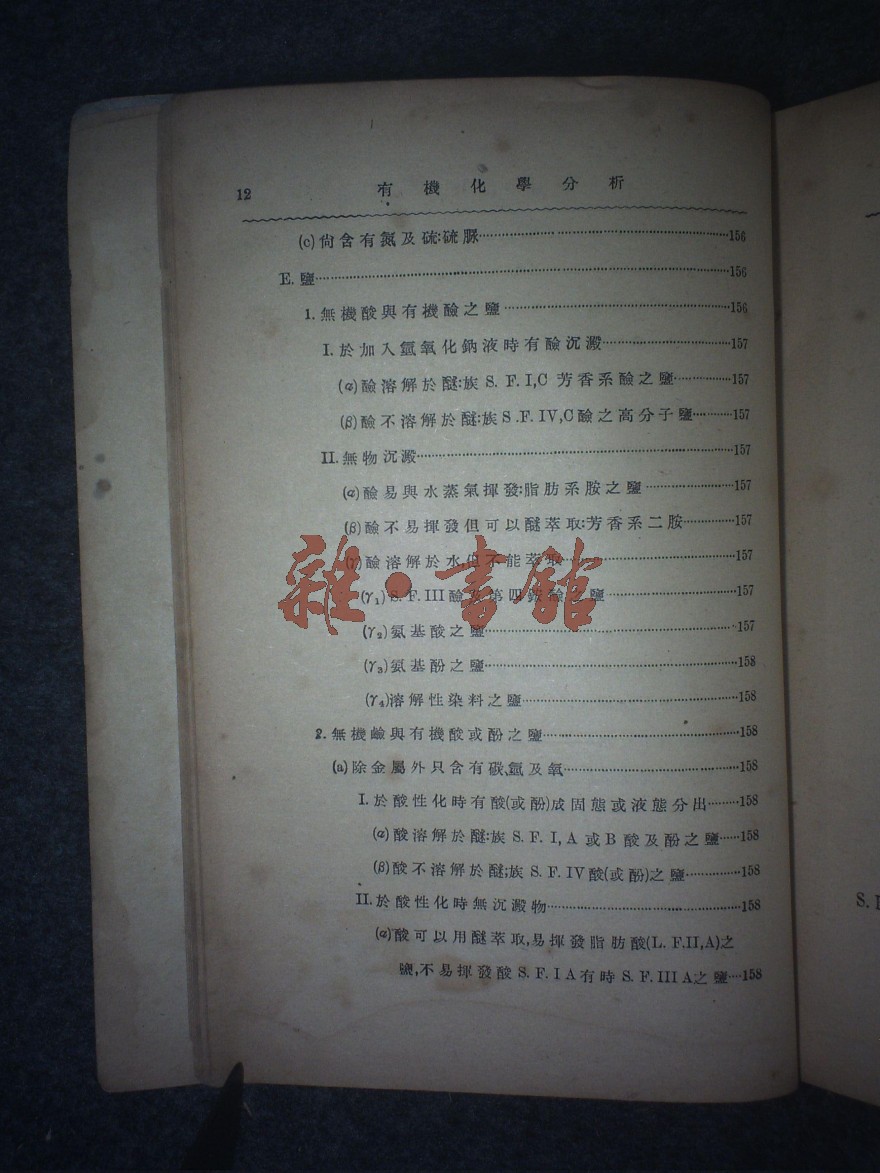 12
有機化學分析
(c)尙含有氮及硫:硫脲……156
E.鹽……156
1.無機酸與有機鹼之鹽……156
I.於加入氫氧化鈉液時有鹼沉澱……157
(α)鹼溶解於醚:族S. F. I,C 芳香系鹼之鹽……157
(β)鹼不溶解於醚:族S .F. IV,C鹼之高分子鹽……157
II.無物沉澱……157
(α)鹼易與水蒸氣揮發:脂肪系胺之鹽……157
(β)鹼不易揮發但可以醚萃取:芳香系二胺……157
(γ)鹼溶解於水,但不能萃取……157
(γ₁)S. F. III鹼及第四銨鹼之鹽……157
(γ₂)氨基酸之鹽……157
(γ₃)氨基酚之鹽……158
(γ₄)溶解性染料之鹽……158
2.無機鹼與有機酸或酚之鹽……158
(a)除金屬外只含有碳,氫及氧……158
I.於酸性化時有酸(或酚)成固態或液態分出……158
(α)酸溶解於醚:族S. F. I, A 或 B 酸及酚之鹽……158
(β)酸不溶解於醚;族S. F. IV酸(或酚)之鹽……158
II.於酸性化時無沉澱物……158
(α)酸可以用醚萃取,易揮發脂肪酸(L. F.II,A)之
鹽,不易揮發酸S. F. I A有時S. F. III A之鹽……158
雜·書館